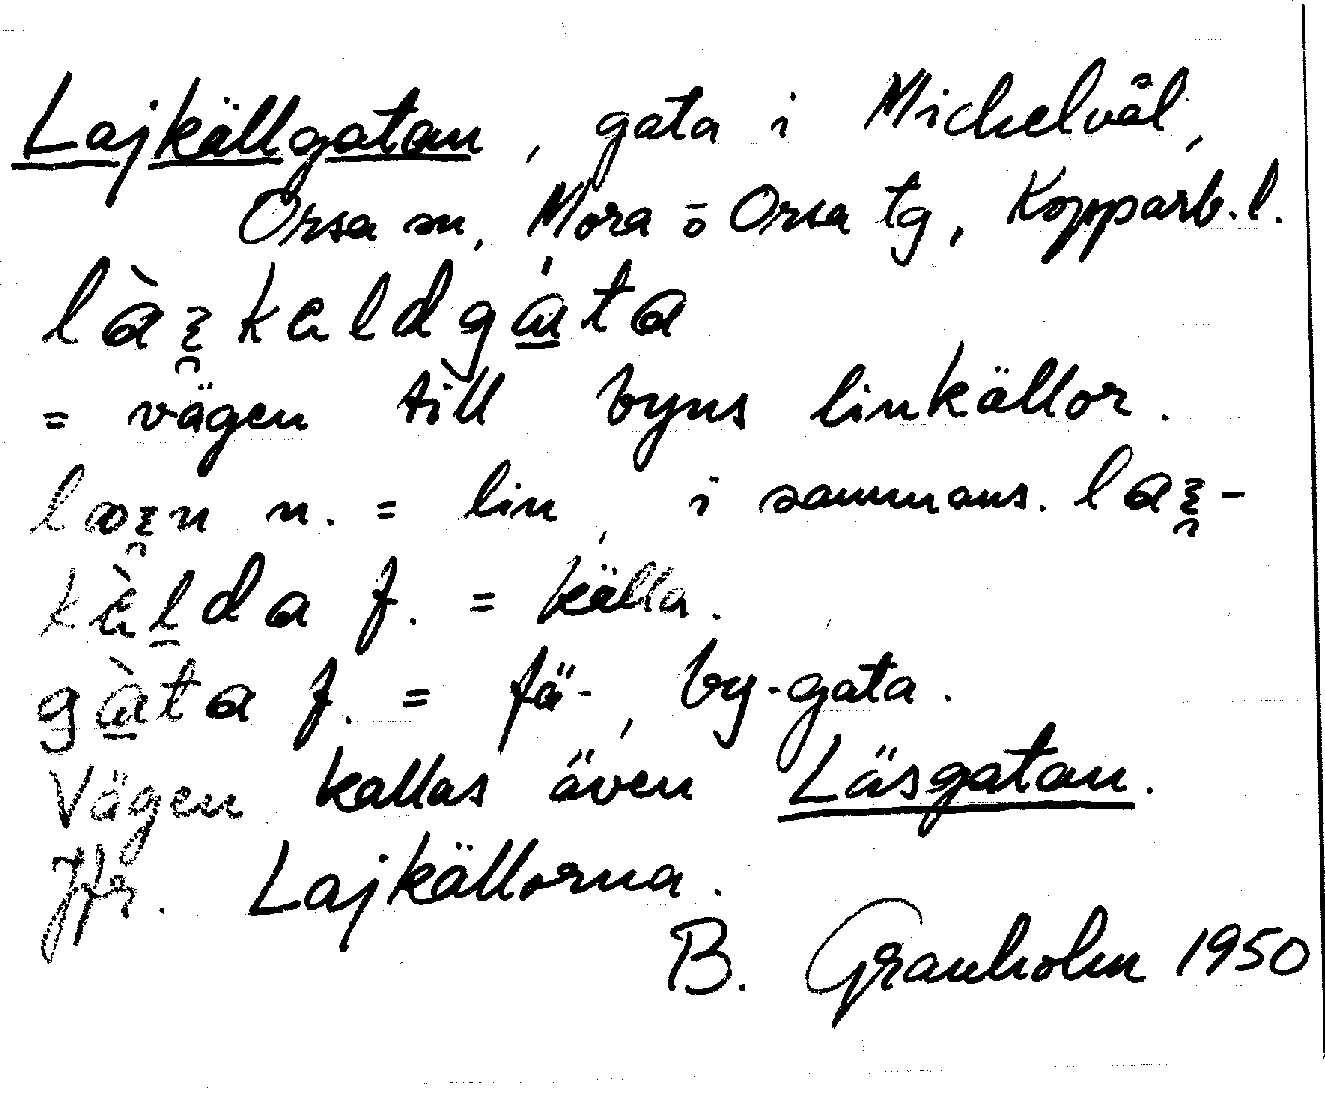 Lajkällgatan, gata i Mickelvål,
Orsa sn, Mora o Orsa tg, Kopparb. l.
= vägen till byns linkällor.
n. = lin, i sammans.
f. = källa.
f. = fä-, by-gata.
Vägen kallas även Läsgatan.
Jfr. Lajkällorna.
B. Granholm 1950